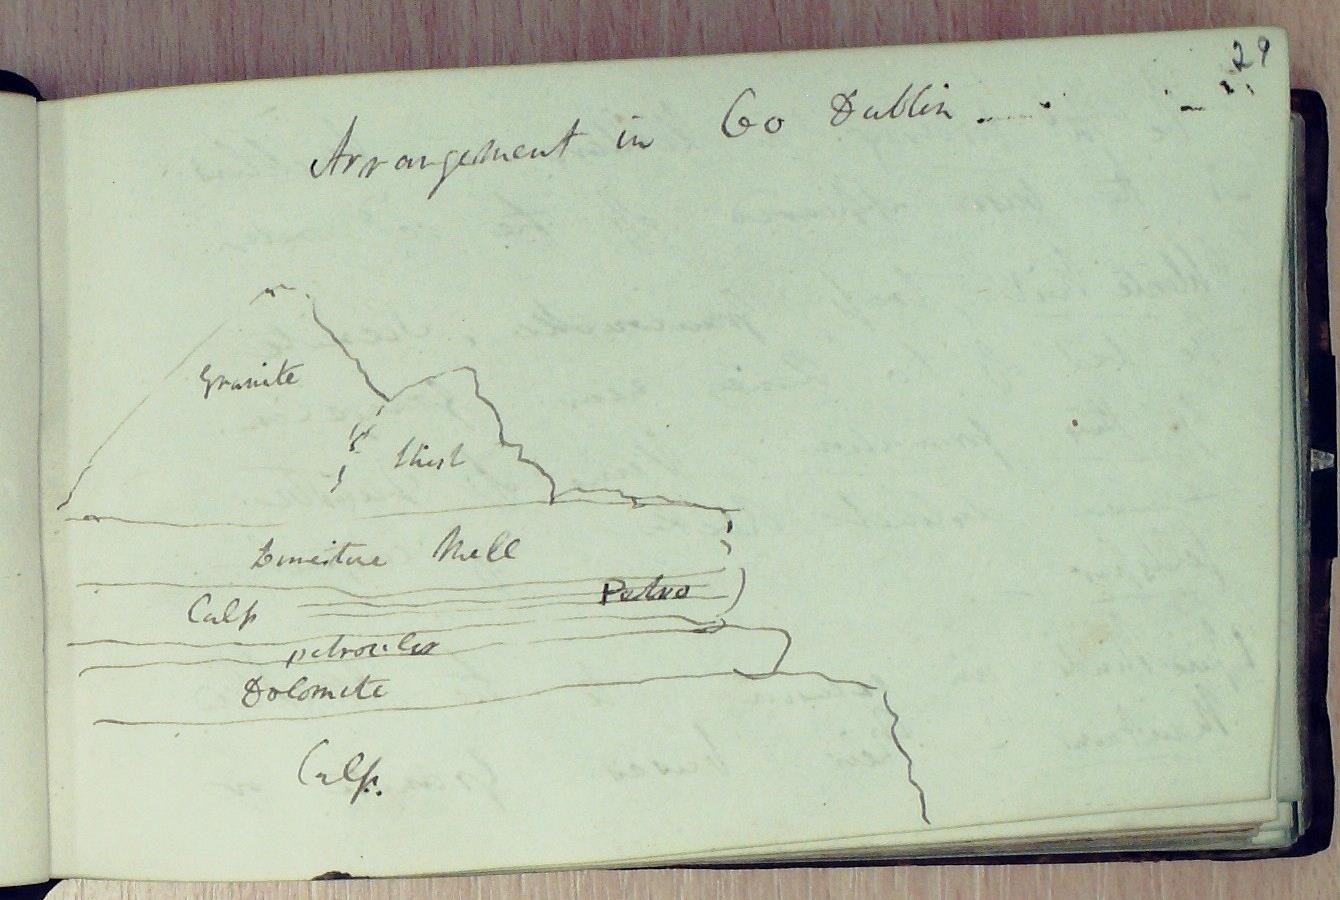 29
Arrangement in Co Dublin
Granite
Shist
Limestone Shell
Petro
Calp
petrosilex
Dolomite
Calp.